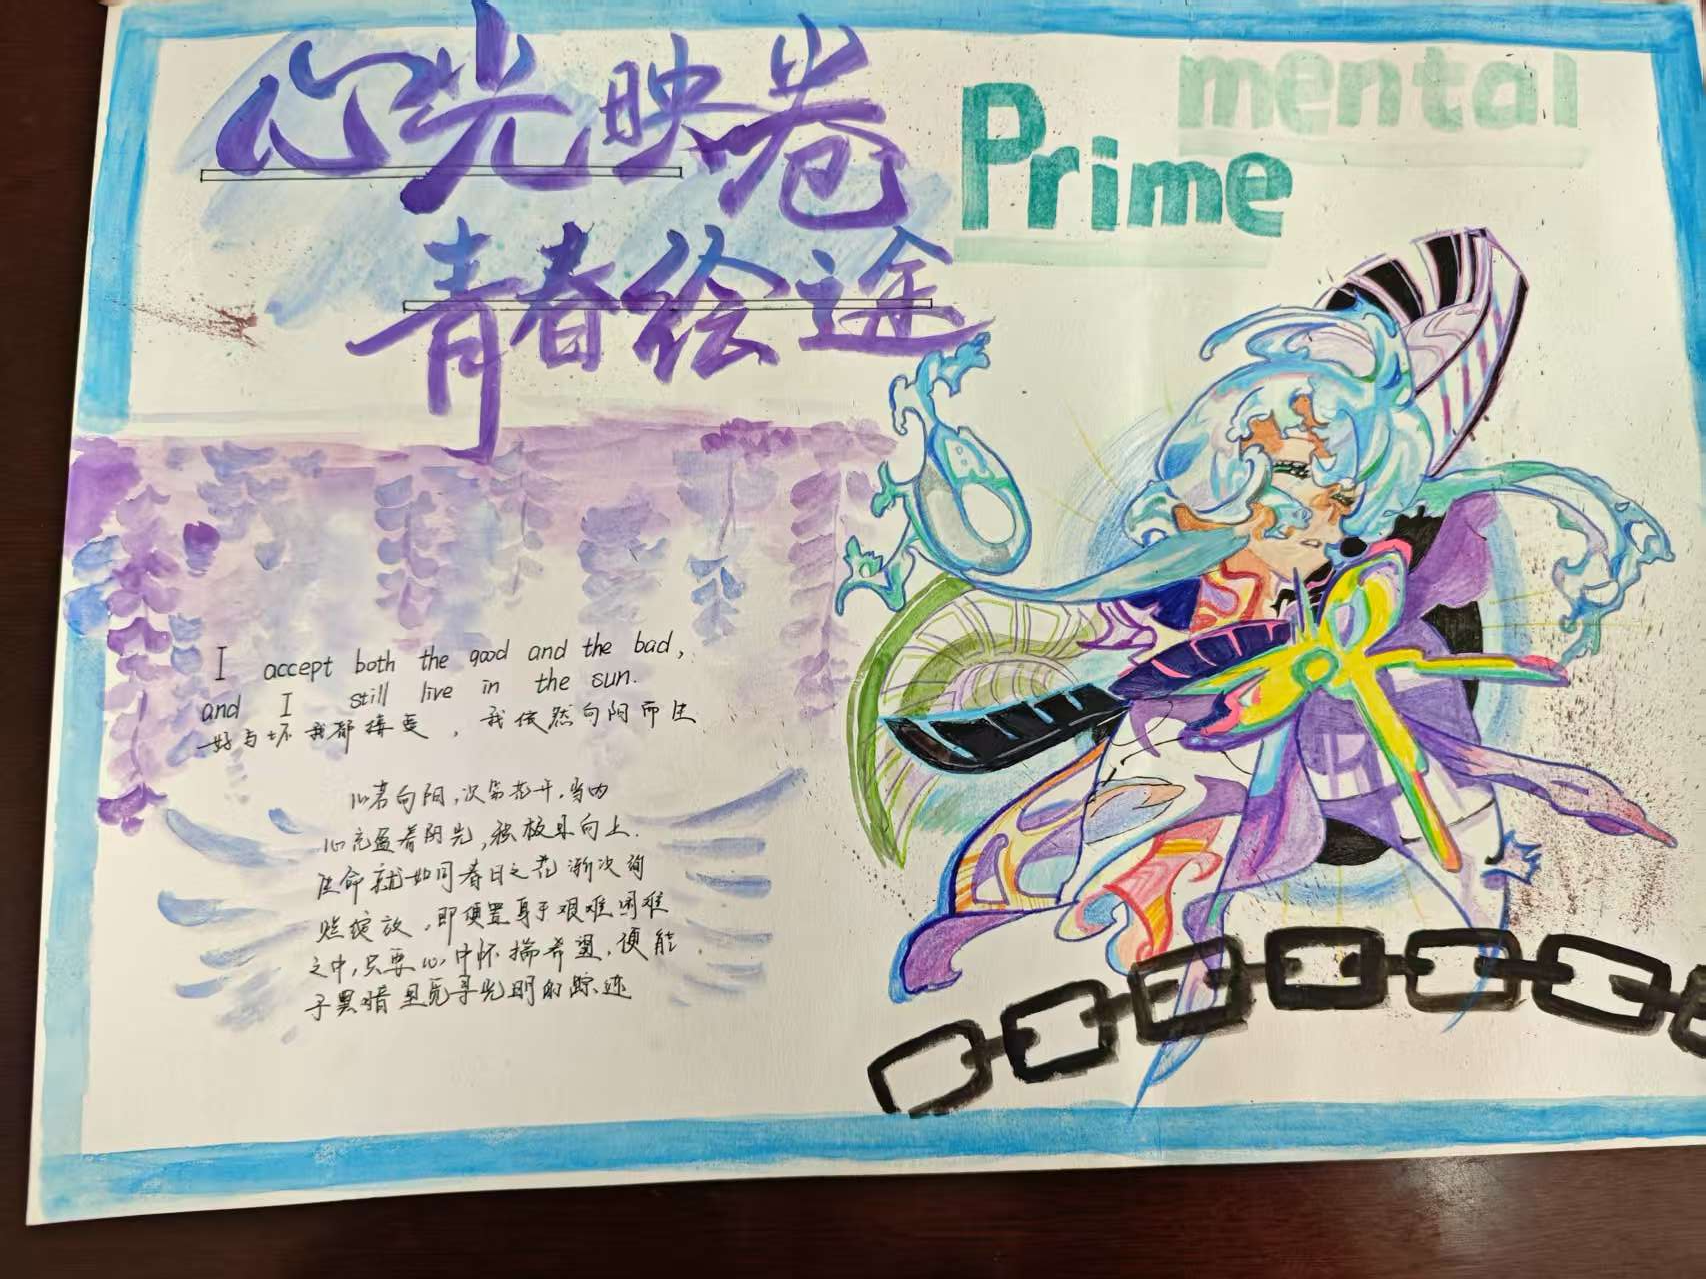 心光映卷
青春绘途
mental
Prime
I accept both the good and the bad,
and I still live in the sun.
好与坏我都接受，我依然向阳而生
心若向阳，次第花开，当内
心充盈着阳光，积极且向上.
生命就如同春日之花渐次绚
烂绽放，即便置身于艰难困难
之中，只要心中怀揣希望，便能
于黑暗里觅寻光明的踪迹